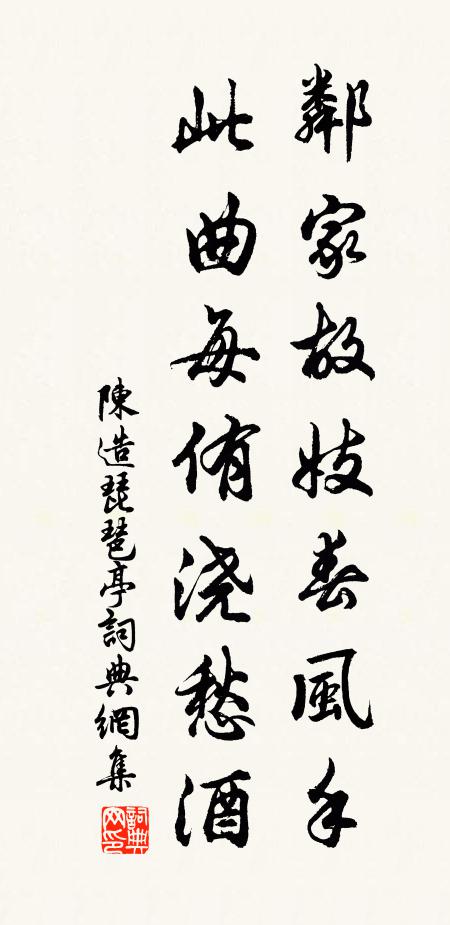 鄰家故妓春風手
此曲每侑浇愁酒
陳造琵琶亭詞典網集
詞典网印